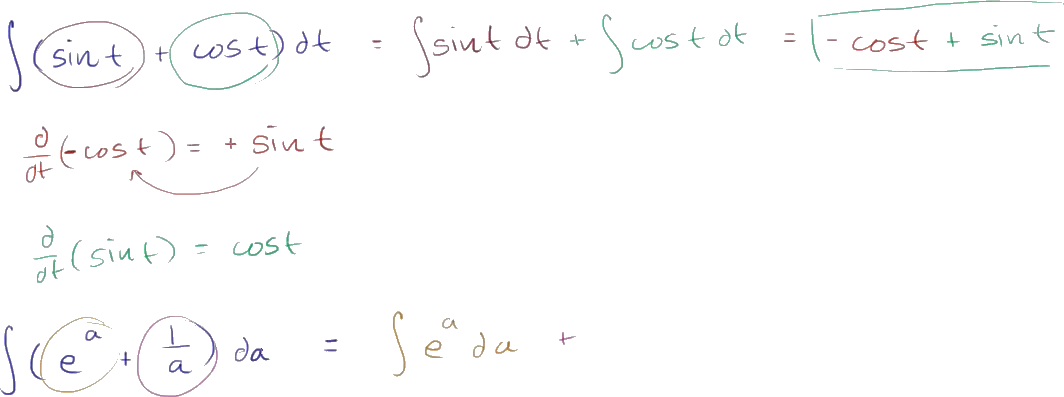 ∫(sin t + cos t) dt = ∫sin t dt + ∫cos t dt = -cos t + sin t
d/dt (-cos t) = + sin t
d/dt (sin t) = cos t
∫(e^a + 1/a) da = ∫e^a da +